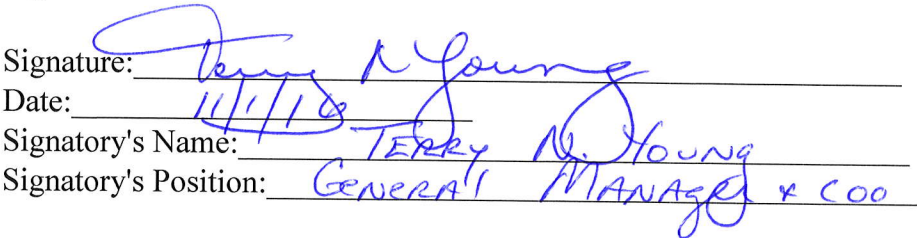 Signature: Terry N Young
Date: 11/1/16
Signatory's Name: TERRY N. YOUNG
Signatory's Position: GENERAL MANAGER & COO